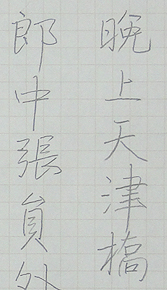 晩上天津橋
郎中張員外